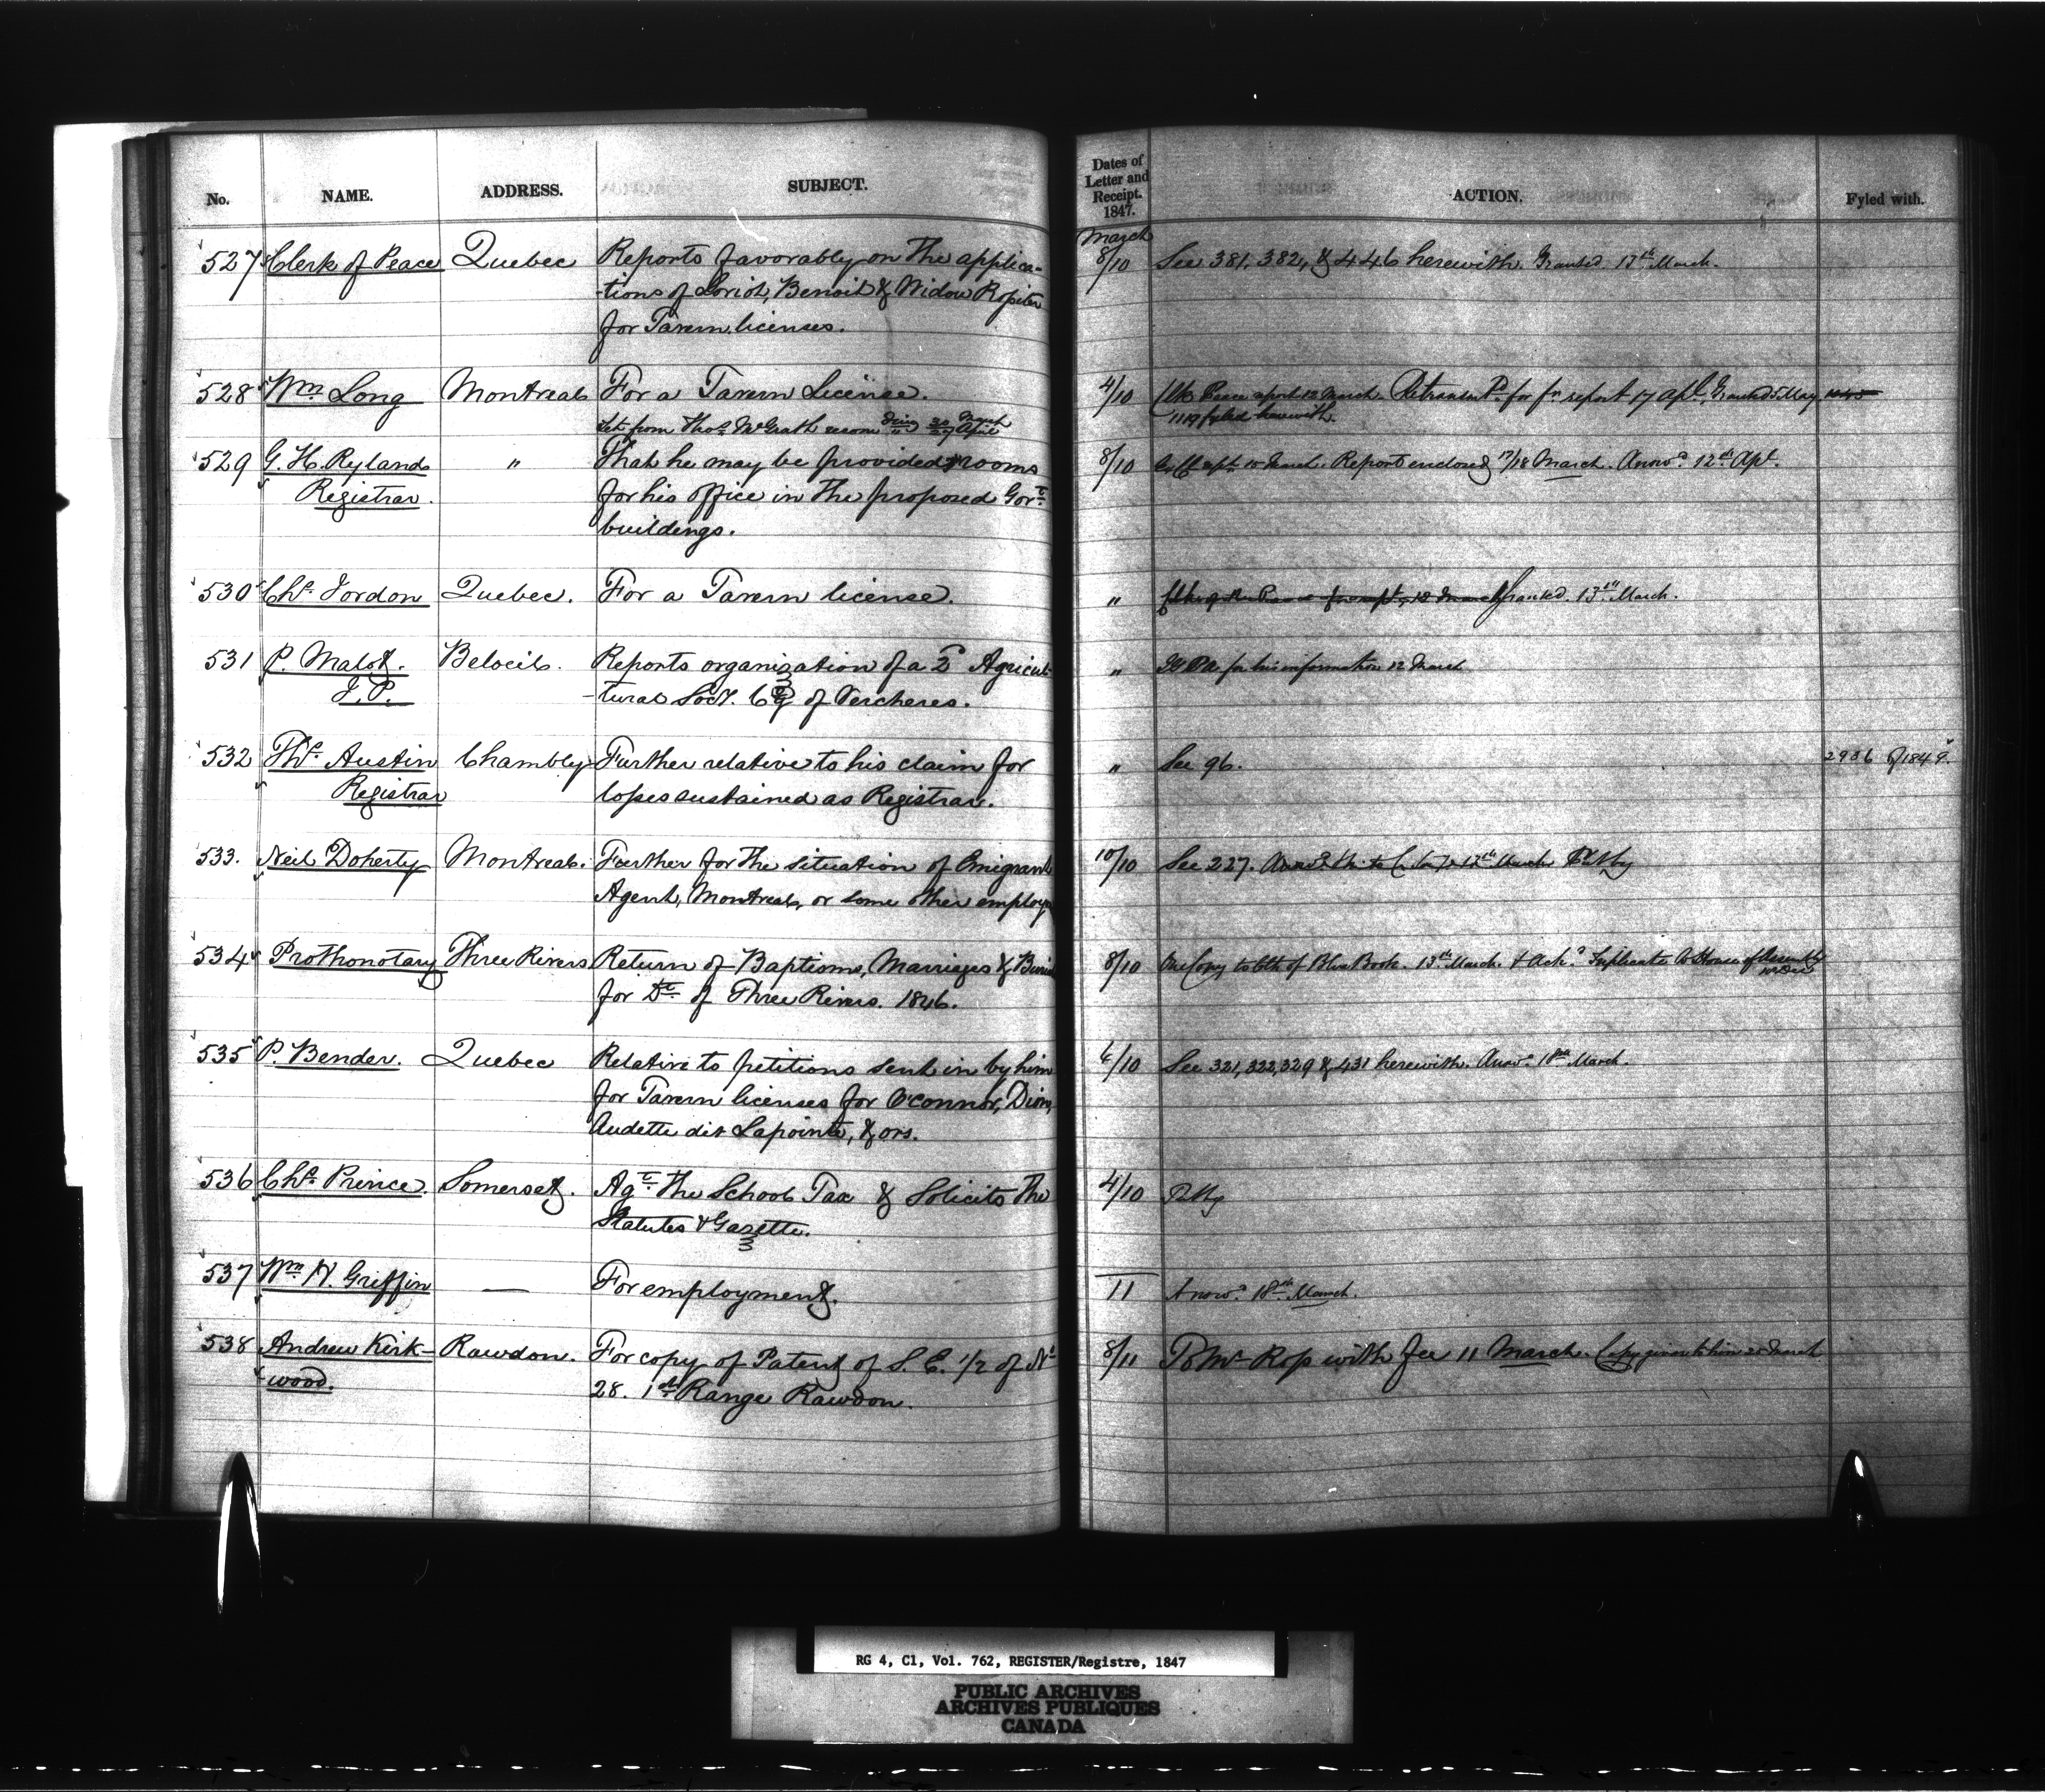 No. NAME. ADDRESS. SUBJECT. Dates of Letter and Receipt. 1847. ACTION. Fyled with.
March
527 Clerk of Peace Quebec Reports favorably on the applica- 8/10 See 381, 382, & 446 herewith. Granted 13th March.
-tions of Loriot, Benoit & Widow
for Tavern licenses.
528 Wm Long Montreal For a Tavern License. 4/10 Clk Peace report 12 March. for fr report 17 apl. Granted 5 May
Let from Thos McGrath recom 1119 fyled herewith
529 G. H. Ryland " That he may be provided rooms 8/10 10 March. Report enclosed 17/18 March. Answd 12th Apl.
Registrar. for his office in the proposed Govt
buildings.
530 Chs Jordon Quebec. For a Tavern license. " Granted. 13th March.
531 P. Malot. Beloeil. Reports organization of a 2d Agricul- " for his information 12 March
J.P. -tural Socy. Cy of Vercheres.
532 Ths Austin Chambly Further relative to his claim for " See 96. 2936 of 1849.
Registrar losses sustained as Registrar.
533. Neil Doherty Montreal. Further for the situation of Emigrant 10/10 See 227.
Agent, Montreal, or some other employ
534 Prothonotary Three Rivers Return of Baptisms, Marriages & Burial 8/10 One Copy to Clk of Blue Book. 13th March. & Ackd Duplicate to House of Assembly
for Dt of Three Rivers. 1846.
535 P. Bender. Quebec Relative to petitions sent in by him 6/10 See 321, 322, 329 & 431 herewith. Answd 18th March.
for Tavern licenses for O'Connor, Dion,
Audette dit Lapointe, & ors.
536 Chs Prince. Somerset. Agt the School Tax & Solicits the 4/10
Statutes & Gazette.
537 Wm H. Griffin — For employment. —/11 Answd 18th March.
538 Andrew Kirk- Rawdon. For copy of Patent of S. E. 1/2 of No 8/11 To Mr Rop with fee 11 March. Copy given to him 20 March
wood. 28. 1st Range Rawdon.
RG 4, C1, Vol. 762, REGISTER/Registre, 1847
PUBLIC ARCHIVES
ARCHIVES PUBLIQUES
CANADA